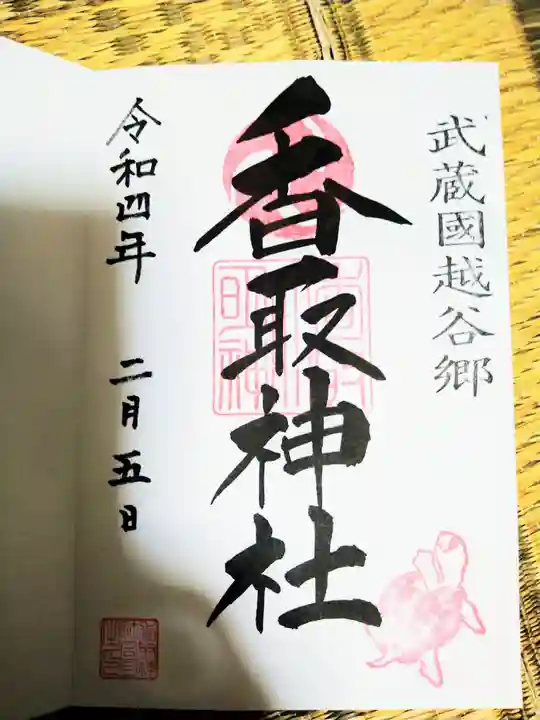 武蔵國越谷郷
香取神社
令和四年 二月五日